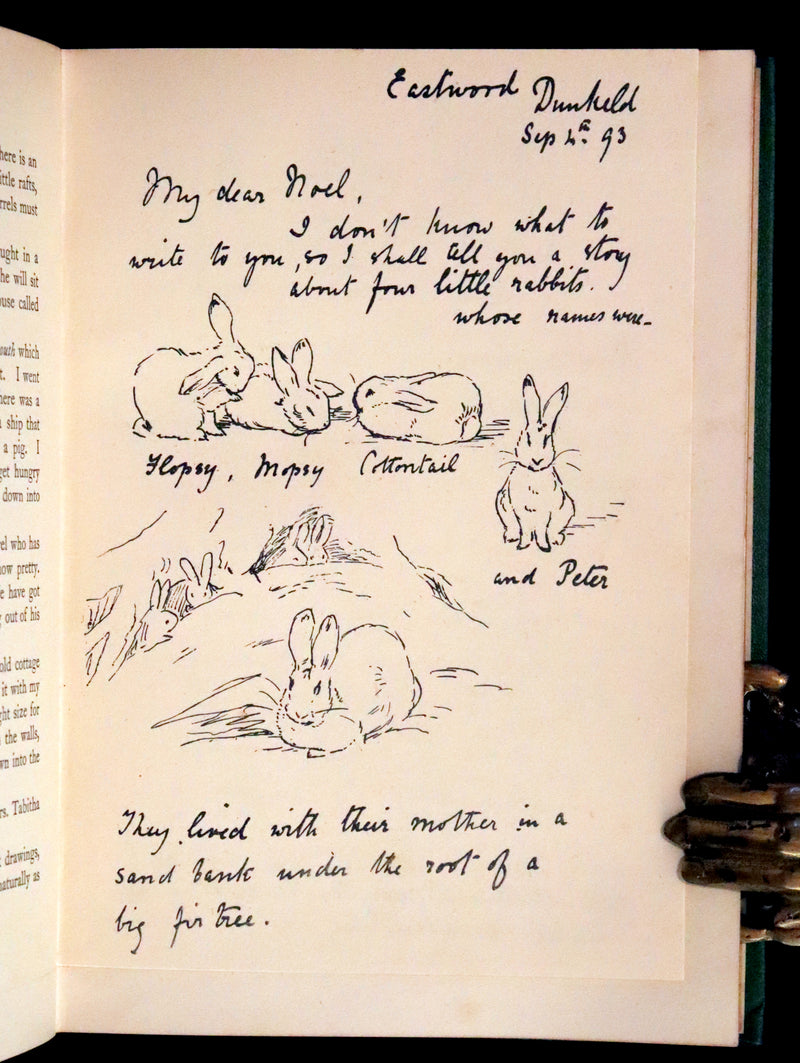 here is an
ittle rafts,
rrels must
ught in a
he will sit
ouse called
outh which
t. I went
here was a
ship that
a pig. I
get hungry
down into
el who has
how pretty.
e have got
out of his
old cottage
it with my
ght size for
the walls,
wn into the
rs. Tabitha
drawings,
naturally as
Eastwood Dunkeld
Sep 4th 93
My dear Noel,
I don't know what to
write to you, so I shall tell you a story
about four little rabbits.
whose names were-
Flopsy, Mopsy Cottontail
and Peter
They lived with their mother in a
sand bank under the root of a
big fir tree.